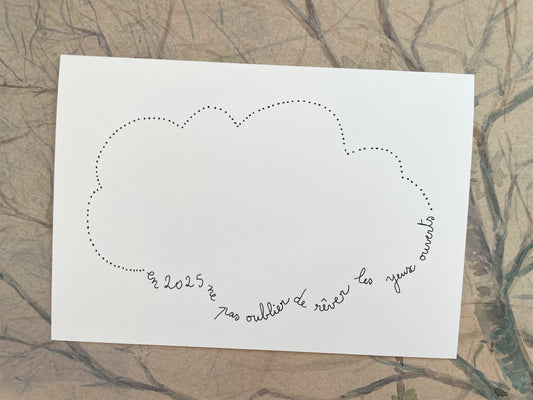 en 2025 ne pas oublier de rêver les yeux ouverts.